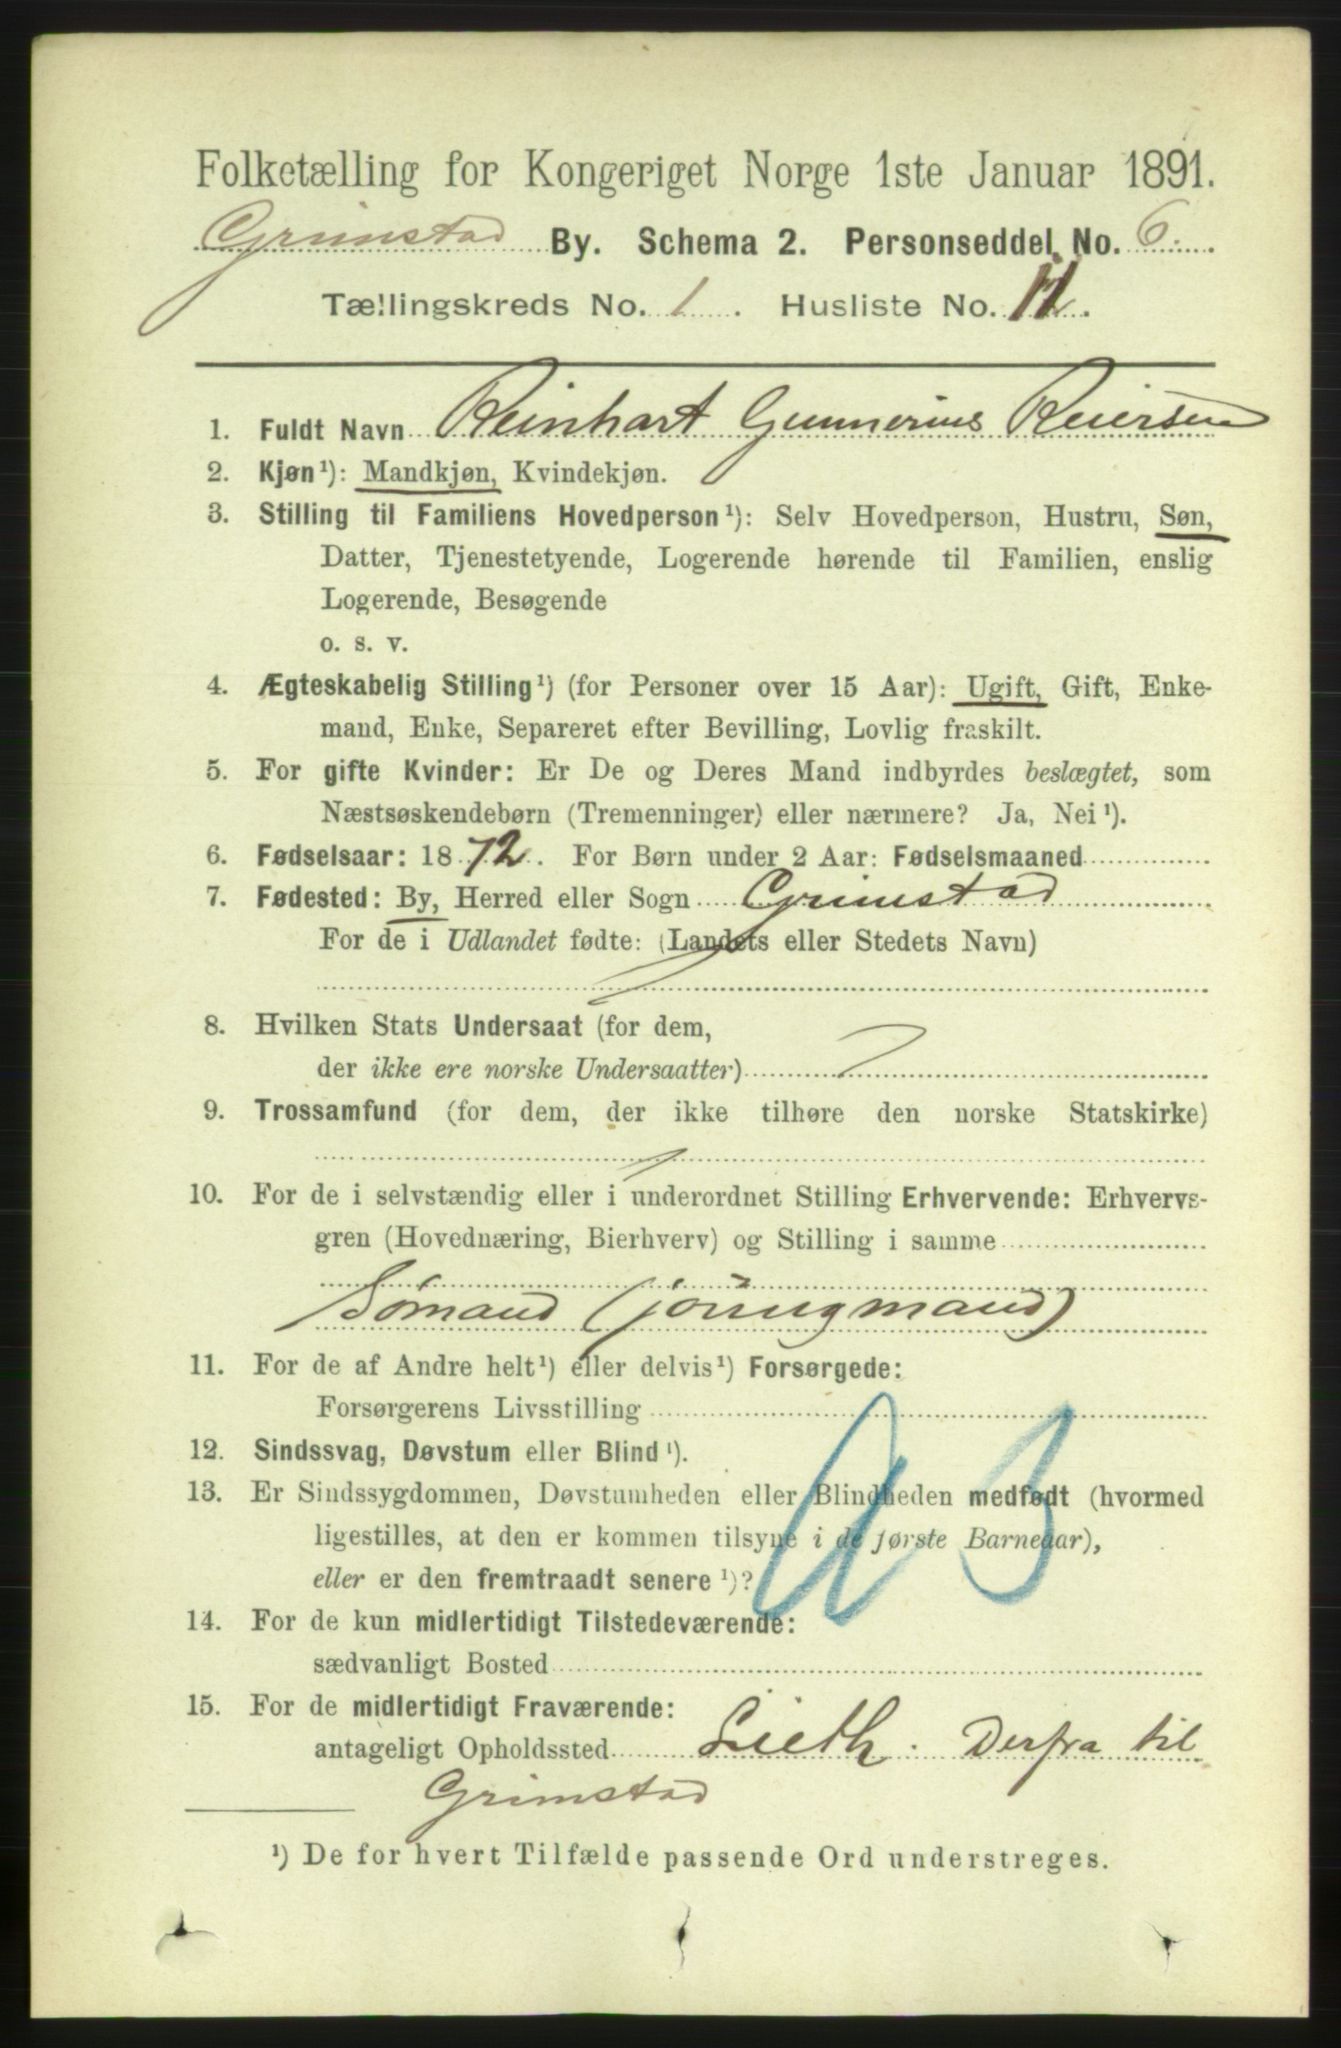 Folketælling for Kongeriget Norge 1ste Januar 1891.
Grimstad By. Schema 2. Personseddel No. 6.
Tællingskreds No. 1. Husliste No. 11.
1. Fuldt Navn Reinhart Gunnerius Reiersen
2. Kjøn¹): Mandkjøn, Kvindekjøn.
3. Stilling til Familiens Hovedperson¹): Selv Hovedperson, Hustru, Søn,
Datter, Tjenestetyende, Logerende hørende til Familien, enslig
Logerende, Besøgende
o. s. v.
4. Ægteskabelig Stilling¹) (for Personer over 15 Aar): Ugift, Gift, Enke-
mand, Enke, Separeret efter Bevilling, Lovlig fraskilt.
5. For gifte Kvinder: Er De og Deres Mand indbyrdes beslægtet, som
Næstsøskendebørn (Tremenninger) eller nærmere? Ja, Nei¹).
6. Fødselsaar: 1872. For Børn under 2 Aar: Fødselsmaaned
7. Fødested: By, Herred eller Sogn Grimstad
For de i Udlandet fødte: (Landets eller Stedets Navn)
8. Hvilken Stats Undersaat (for dem,
der ikke ere norske Undersaatter)
9. Trossamfund (for dem, der ikke tilhøre den norske Statskirke)
10. For de i selvstændig eller i underordnet Stilling Erhvervende: Erhvervs-
gren (Hovednæring, Bierhverv) og Stilling i samme
Sømand (joüngmand)
11. For de af Andre helt¹) eller delvis¹) Forsørgede:
Forsørgerens Livsstilling
12. Sindssvag, Døvstum eller Blind¹).
13. Er Sindssygdommen, Døvstumheden eller Blindheden medfødt (hvormed
ligestilles, at den er kommen tilsyne i de første Barneaar),
eller er den fremtraadt senere¹)?
14. For de kun midlertidigt Tilstedeværende:
sædvanligt Bosted
15. For de midlertidigt Fraværende:
antageligt Opholdssted Lieth. Derfra til
Grimstad
¹) De for hvert Tilfælde passende Ord understreges.